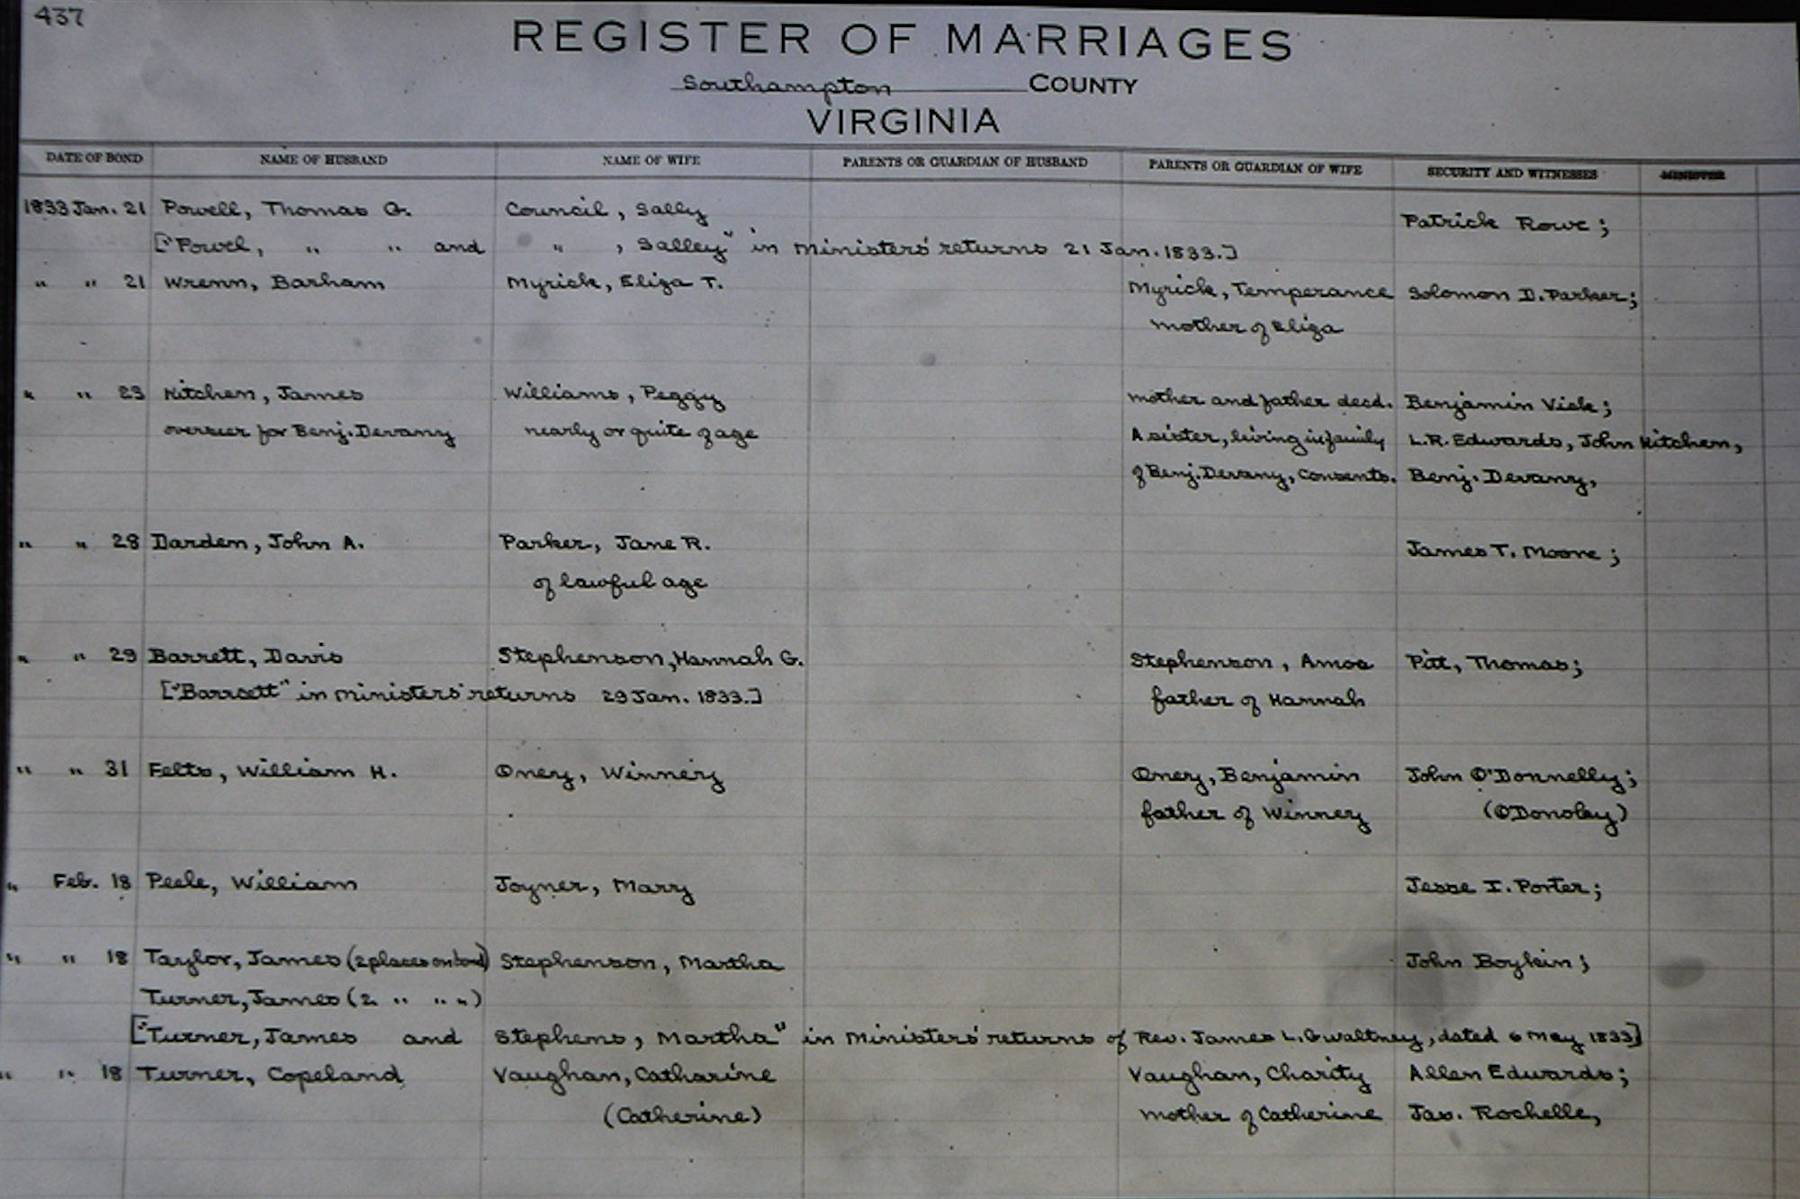 437
REGISTER OF MARRIAGES
Southampton COUNTY
VIRGINIA
DATE OF BOND NAME OF HUSBAND NAME OF WIFE PARENTS OR GUARDIAN OF HUSBAND PARENTS OR GUARDIAN OF WIFE SECURITY AND WITNESSES MINISTER
1833 Jan. 21 Powell, Thomas G. Council, Sally Patrick Rowe;
["Powel, " " and " , Salley" in Ministers' returns 21 Jan. 1833.]
" " 21 Wrenn, Barham Myrick, Eliza T. Myrick, Temperance Solomon D. Parker;
mother of Eliza
" " 23 Kitchen, James Williams, Peggy mother and father decd. Benjamin Vick;
overseer for Benj. Devany nearly or quite of age A sister, living in family L.R. Edwards, John Kitchen,
of Benj. Devany, consents. Benj. Devany,
" " 28 Darden, John A. Parker, Jane R. James T. Moore;
of lawful age
" " 29 Barrett, Davis Stephenson, Hannah G. Stephenson, Amos Pitt, Thomas;
["Barrcett" in Ministers' returns 29 Jan. 1833.] father of Hannah
" " 31 Felts, William H. Oney, Winney Oney, Benjamin John O'Donnelly;
father of Winney (ODonoley)
" Feb. 18 Peele, William Joyner, Mary Jesse I. Porter;
" " 18 Taylor, James (2 places on bond) Stephenson, Martha John Boykin;
Turner, James (2 " " ")
["Turner, James and Stephens, Martha" in Ministers' returns of Rev. James L. Gwaltney, dated 6 May 1833]
" " 18 Turner, Copeland Vaughan, Catharine Vaughan, Charity Allen Edwards;
(Catherine) mother of Catherine Jas. Rochelle,